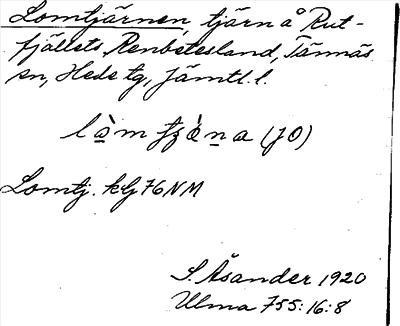 Lomtjärnen, tjärn å Rut-
fjällets Renbetesland, Tännäs
sn, Hede tg, Jämtl. l.
(JO)
Lomtj. kbg 76 NM
S. Åsander 1920
Ulma 755:16:8